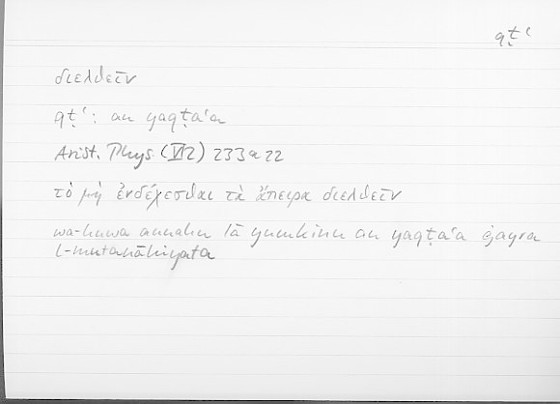 qṭʿ
διελθεῖν
qṭʿ: an yaqṭaʿa
Arist. Phys (VI 2) 233a22
τὸ μὴ ἐνδέχεσθαι τὰ ἄπειρα διελθεῖν
wa-huwa annahu lā yumkinu an yaqṭaʿa ġayra
l-mutanāhiyata